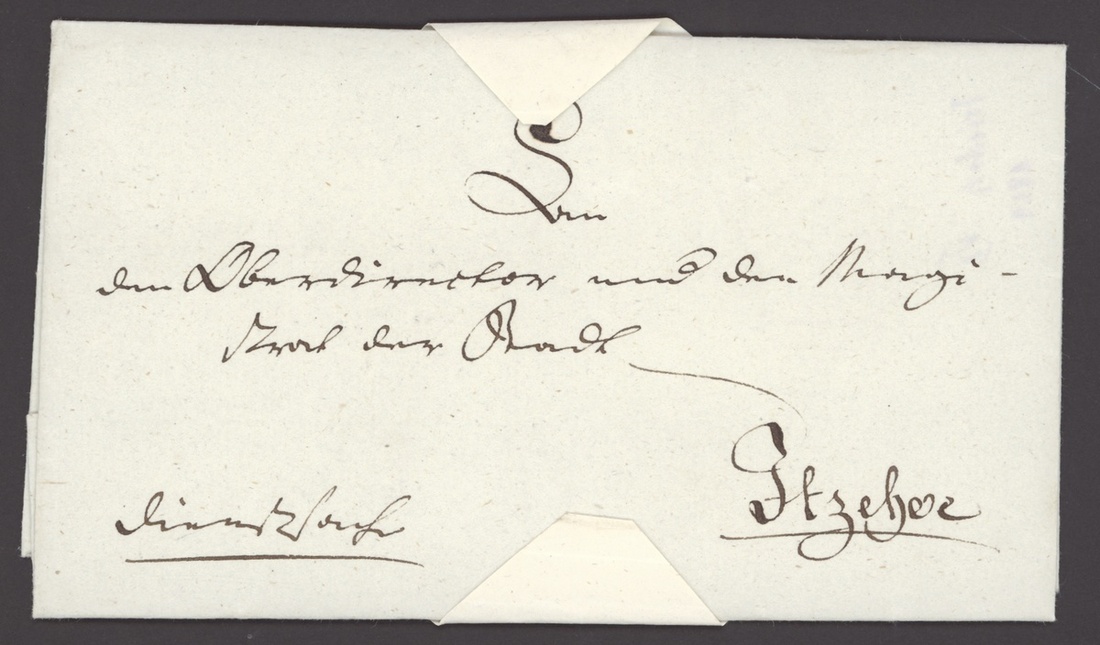 An
den Oberdirector und den Magi-
strat der Stadt
Itzehoe
Dienstsache